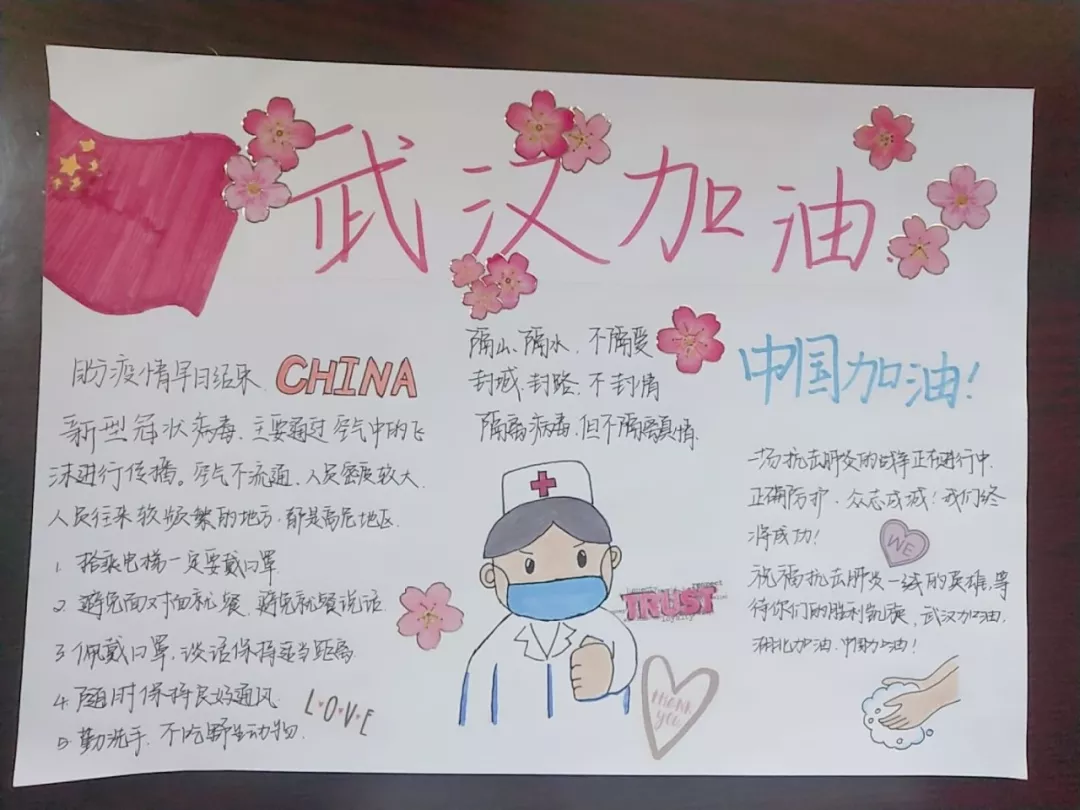 武汉加油
盼疫情早日结束
CHINA
新型冠状病毒，主要通过空气中的飞
沫进行传播。空气不流通、人员密度较大、
人员往来较频繁的地方，都是高危地区
1. 搭乘电梯一定要戴口罩
2. 避免面对面就餐，避免就餐说话
3. 佩戴口罩，谈话保持适当距离
4. 随时保持良好通风
5. 勤洗手，不吃野生动物.
LOVE
隔山、隔水、不隔爱
封城、封路、不封情
隔离病毒，但不隔离真情.
TRUST
THANK
YOU
中国加油！
一场抗击肺炎的战争正在进行中
正确防护，众志成城！我们终
将成功！
WE
祝福抗击肺炎一线的英雄，等
待你们的胜利凯旋，武汉加油，
湖北加油，中国加油！